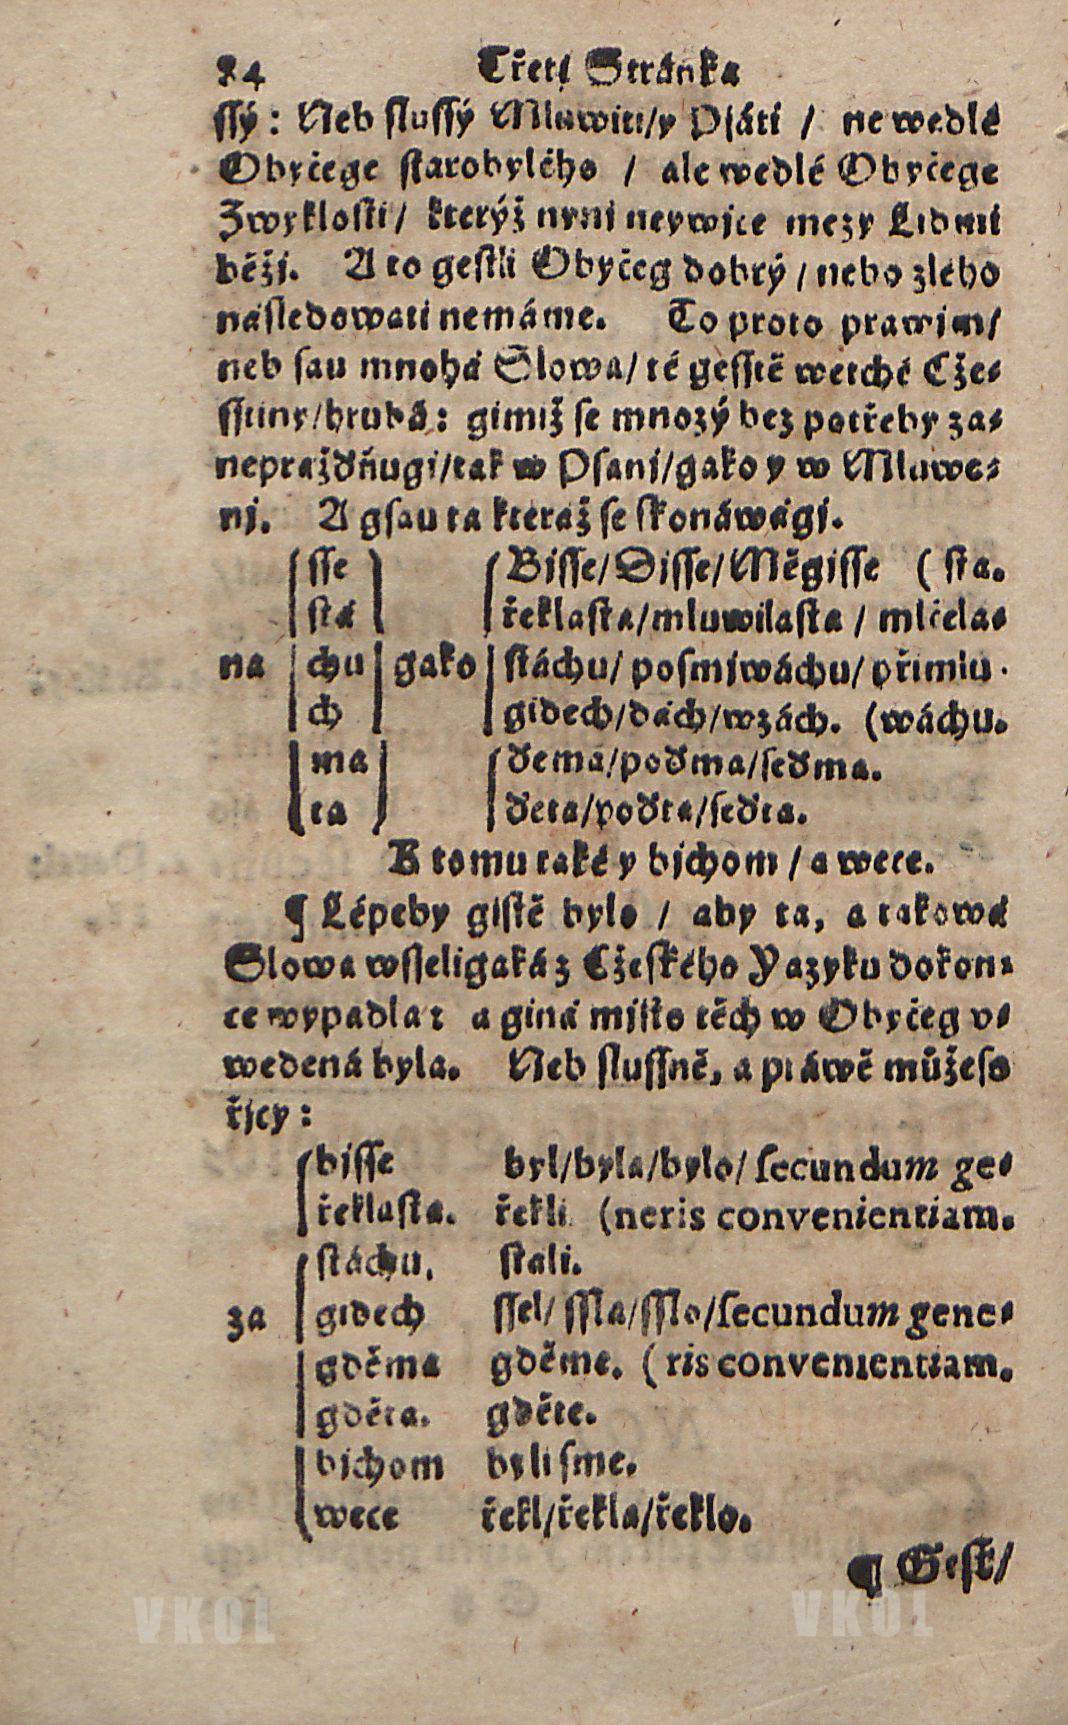 84 Třetj Stránka
ſſý: Neb ſluſſý Mluwiti/y Pſáti / ne wedlé
Obyčege ſtarobylého / ale wedlé Obyčege
Zwykloſti/ kterýž nynj neywjce mezy Lidmi
běžj. A to geſtli Obyčeg dobrý / nebo zlého
náſledowati nemáme. To proto prawjm/
neb ſau mnohá Slowa/ té geſſtě wetché Cže⸗
ſſtiny/hrubá: gimiž ſe mnozý bez potřeby za⸗
nepražďňugj/tak w Pſanj/gako y w Mluwe⸗
nj. A gſau ta kteráž ſe ſkonáwágj.
ſſe Biſſe/Diſſe/Měgiſſe ( ſta.
ſtá řeklaſta/mluwilaſta / mlčela⸗
na chu gako ſtáchu/ poſmjwáchu/ přimlu⸗
ch gidech/dách/wzách. (wáchu.
ma ďema/poďma/ſeďma.
ta ďeta/poďta/ſeďta.
K tomu také y bjchom / a wece.
¶ Lépeby giſtě bylo / aby ta, a taková
Slowa wſſeligaká z Cžeſkého Yazyku dokon⸗
ce wypadla: a giná mjſto těch w Obyčeg v⸗
wedená byla. Neb ſluſſně, a práwě můžeſe
řjcy:
biſſe byl/byla/bylo/ ſecundum ge⸗
řeklaſta. řekli (neris convenientiam.
ſtáchu. ſtali.
za gidech ſſel/ ſſla/ſſlo/ſecundum gene⸗
gděma gděme. ( ris convenientiam.
gděta. gděte.
bjchom byli ſme.
wece řekl/řekla/řeklo.
¶ Geſt/
VKOL VKOL